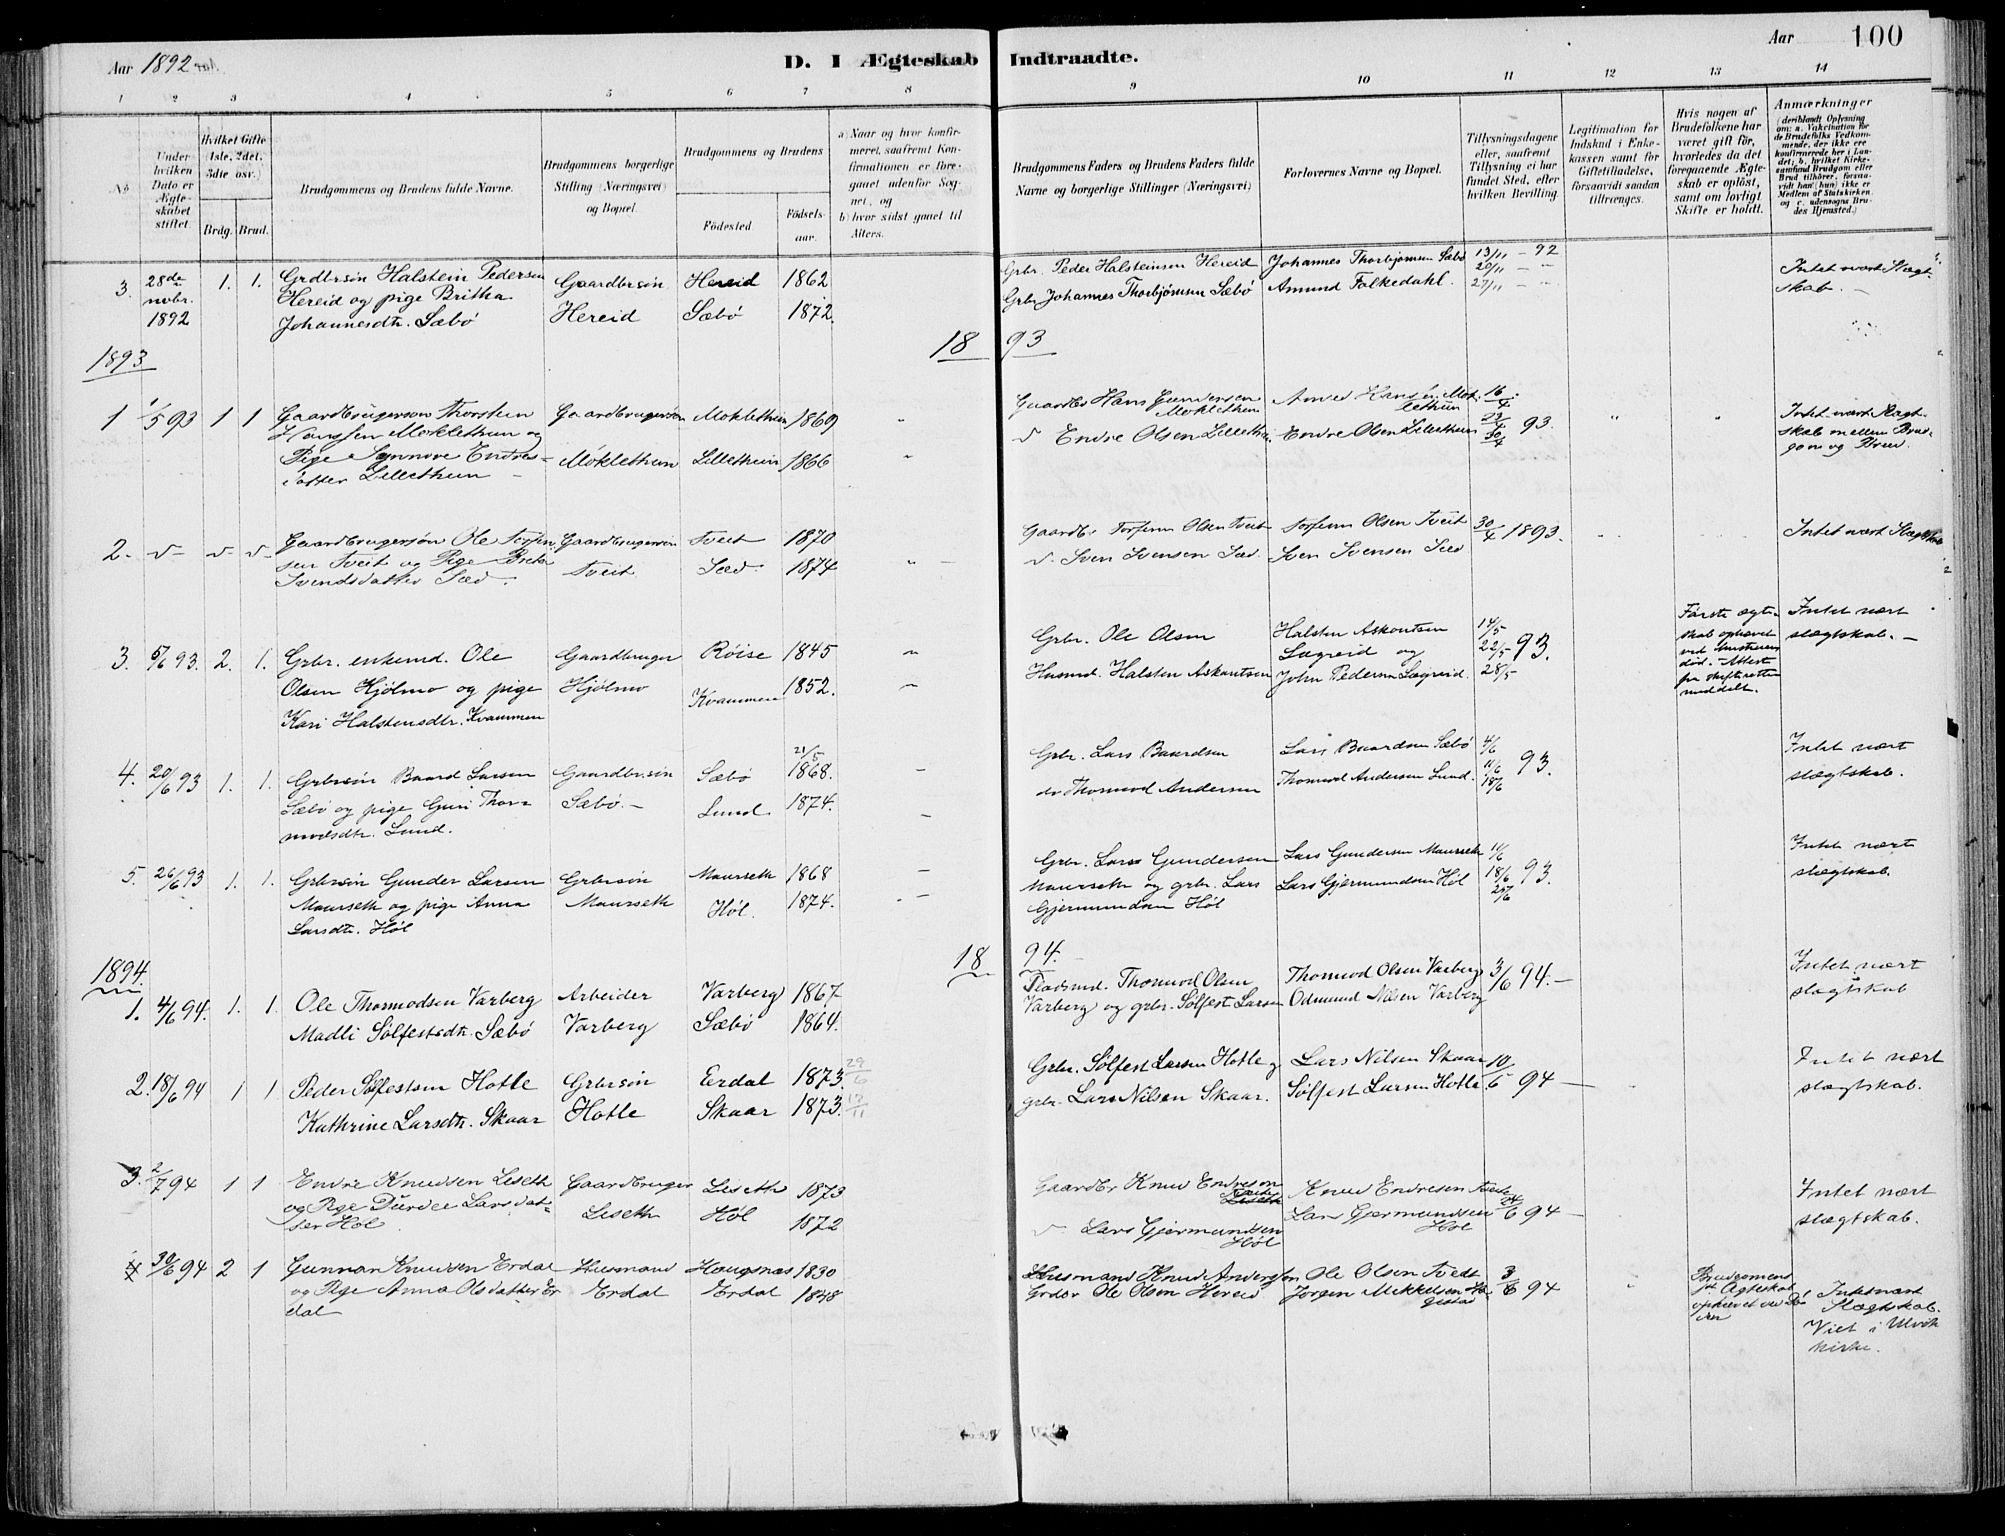 Aar 1892
D. I Ægteskab Indtraadte.
Aar 100
1 2 3 4 5 6 7 8 9 10 11 12 13 14
No
Under hvilken Dato er Ægteskabet stiftet.
Hvilket Gifte (1ste, 2det, 3die osv.)
Brdg. Brud.
Brudgommens og Brudens fulde Navne.
Brudgommens borgerlige Stilling (Næringsvei) og Bopæl.
Brudgommens og Brudens
Födested.
Födselsaar.
a) Naar og hvor konfirmeret, saafremt Konfirmationen er foregaaet udenfor Sognet, og
b) hvor sidst gaaet til Alters.
Brudgommens Faders og Brudens Faders fulde Navne og borgerlige Stillinger (Næringsvei)
Forlovernes Navne og Bopæl.
Tillysningsdagene eller, saafremt Tillysning ei har fundet Sted, efter hvilken Bevilling.
Legitimation for Indskud i Enkekassen samt for Giftetilladelse, forsaavidt saadan tiltrænges.
Hvis nogen af Brudefolkene har været gift för, hvorledes da det foregaaende Ægteskab er oplöst, samt om lovligt Skifte er holdt.
Anmærkninger (deriblandt Oplysning om: a. Vakcination for de Brudefolks Vedkommende, der ikke ere konfirmerede her i Landet; b. hvilket Kirkesamfund Brudgom eller Brud tilhörer, forsaavidt han (hun) ikke er Medlem af Statskirken, og c. udensogns Brudes Hjemsted.)
3. 28de novbr. 1892 1. 1. Grdbrsön Halstein Pedersen Hereid og pige Britha Johannesdtr. Sæbö
Gaardbrsön Hereid
Hereid 1862
Sæbö 1872.
Grbr. Peder Halsteinsen Hereid
Grbr Johannes Thorbjörnsen Sæbö
Johannes Thorbjörnsen Sæbö
Amund Folkedahl.
13/11 - 92
20/11 - "
27/11 - "
Intet nært Slægtskab.
1893 18 93
1 1/5 93 1 1 Gaardbrugersön Thorstein Hanssen Moklethun og Pige Synnove Endresdatter Lillethun
Gaardbrugersön Möklethun
Moklethun 1869
Lillethun 1866
Gaardbr Hans Gundersen Moklethun
Endre Olsen Lillethun
Hansen Moklethun
Endre Olsen Lillethun
16/4 23/4 30/4 93.
Intet nært Slægtskab mellem Brudgom og Brud.
2. Gaardbrugersön Ole Torfinsen Tveit og Pige Brita Svendsdatter Sæd.
Gaardbrugersön Tveit
Tveit 1870
Sæd. 1874
Gaardbr Torfinn Olsen Tveit
Sven Svensen Sæd.
Torfinn Olsen Tveit
Sven Svensen Sæd
30/4 1893.
Intet nært Slægtskab
3. 5/6 93. 2. 1. Grbr. enkemd. Ole Olsen Hjölmo og pige Kari Halstensdtr. Kvammen
Gaardbruger Hjölmo
Röise 1845
Kvammen 1852.
Grbr. Ole Olsen
Husmd. Halsten Askoutsen
Halsten Askoutsen Sægreid og
John Pedersen Sægreid.
14/5 22/5 28/5 93.
Förste ægteskab ophævet ved hustruens död. - Attest fra skifteretten meddelt.
Intet nært slægtskab. -
4. 20/6 93 1. 1. Grbrsön Baard Larsen Sæbö og pige Guri Thormodsdtr. Lund.
Gaardbrsön Sæbö. -
Sæbö 21/5 1868.
Lund 1874.
Grbr. Lars Baardsen
do Thormod Andersen
Lars Baardsen Sæbö
Thormod Andersen Lund.
4/6 11/6 18/6 93.
Intet nært slægtskab.
5. 26/6 93 1. 1. Grbrsön Gunder Larsen Maurseth og pige Anna Larsdtr. Höl
Grbrsön Maurseth
Maurseth 1868
Höl. 1874.
Grbr. Lars Gundersen Maurseth og grbr. Lars Gjermundsen Höl
Lars Gundersen Maurseth
Lars Gjermundsen Höl
11/6 18/6 25/6 93.
Intet nært slægtskab.
1894. 18 94.
1. 4/6 94. 1. 1. Ole Thormodsen Varberg
Madli Sölfestsdtr. Sæbö
Arbeider Varberg
Varberg 1867
Sæbö 1864.
Pladsmd. Thormod Olsen Varberg og grbr. Sölfest Larsen
Thormod Olsen Varberg
Odmund Nilsen Varberg
3/6 94. -
Intet nært slægtskab
2. 18/6 94 1 1 Peder Sölfestsen Hotle
Kathrine Larsdtr. Skaar
Grbrsön Hotle
Erdal 1873. 29/6
Skaar 1873. 17/11
Grbr. Sölfest Larsen Hotle og
grbr. Lars Nilsen Skaar.
Lars Nilsen Skaar
Sölfest Larsen Hotle
10/6 94 -
Intet nært slægtskab.
3. 2/7 94 1 1 Endre Knudsen Liseth og Pige Durdei Larsdatter Höl
Gaardbruger Liseth
Liseth 1873
Höl 1872
Gaardbr Knud Endresen
Lars Gjermundsen Höl
Knud Endresen Tveito
Lars Gjermundsen Höl
24/6 94 -
Intet nært slægtskab.
30/6 94 2 1 Gunnar Knudsen Erdal og Pige Anna Olsdatter Erdal
Husmand Erdal
Haugsnas 1830
Erdal 1848
Husmand Knud Andersen
Grdbr Ole Olsen Hereid
Ole Olsen Tvedt
Jörgen Mikkelsen
3/6 94
Brudgommens Ægteskab ophævet ved
Intet nært Slægtskab. Viet i Ulvik kirke.